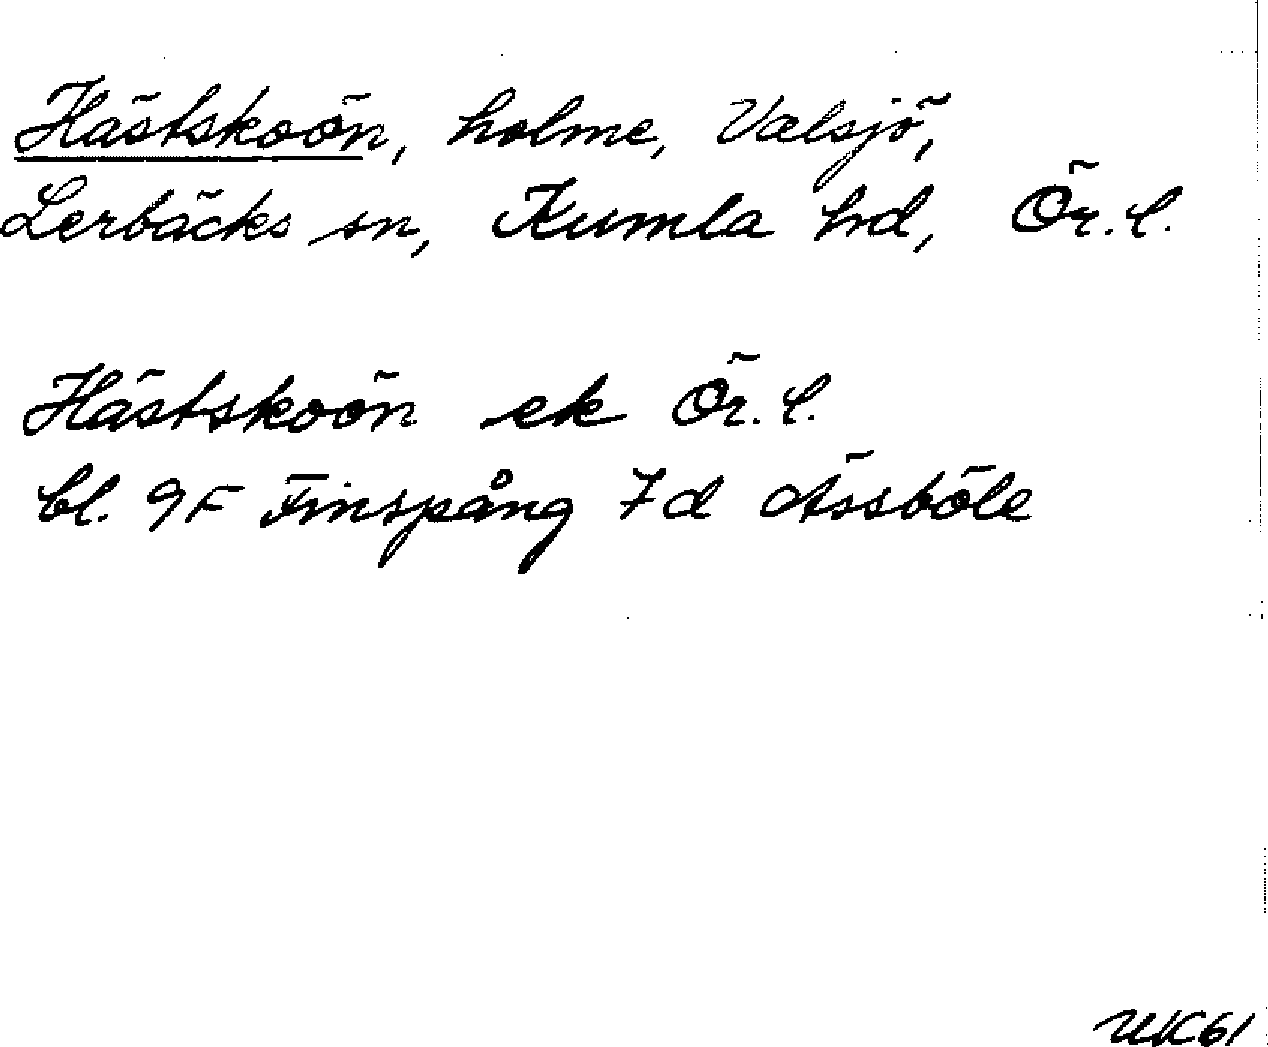 Hästskoön, holme, Valsjö,
Lerbäcks sn, Kumla hd, Ör. l.
Hästskoön ek Ör. l.
bl. 9F Finspång 7d Åssböle
UK61